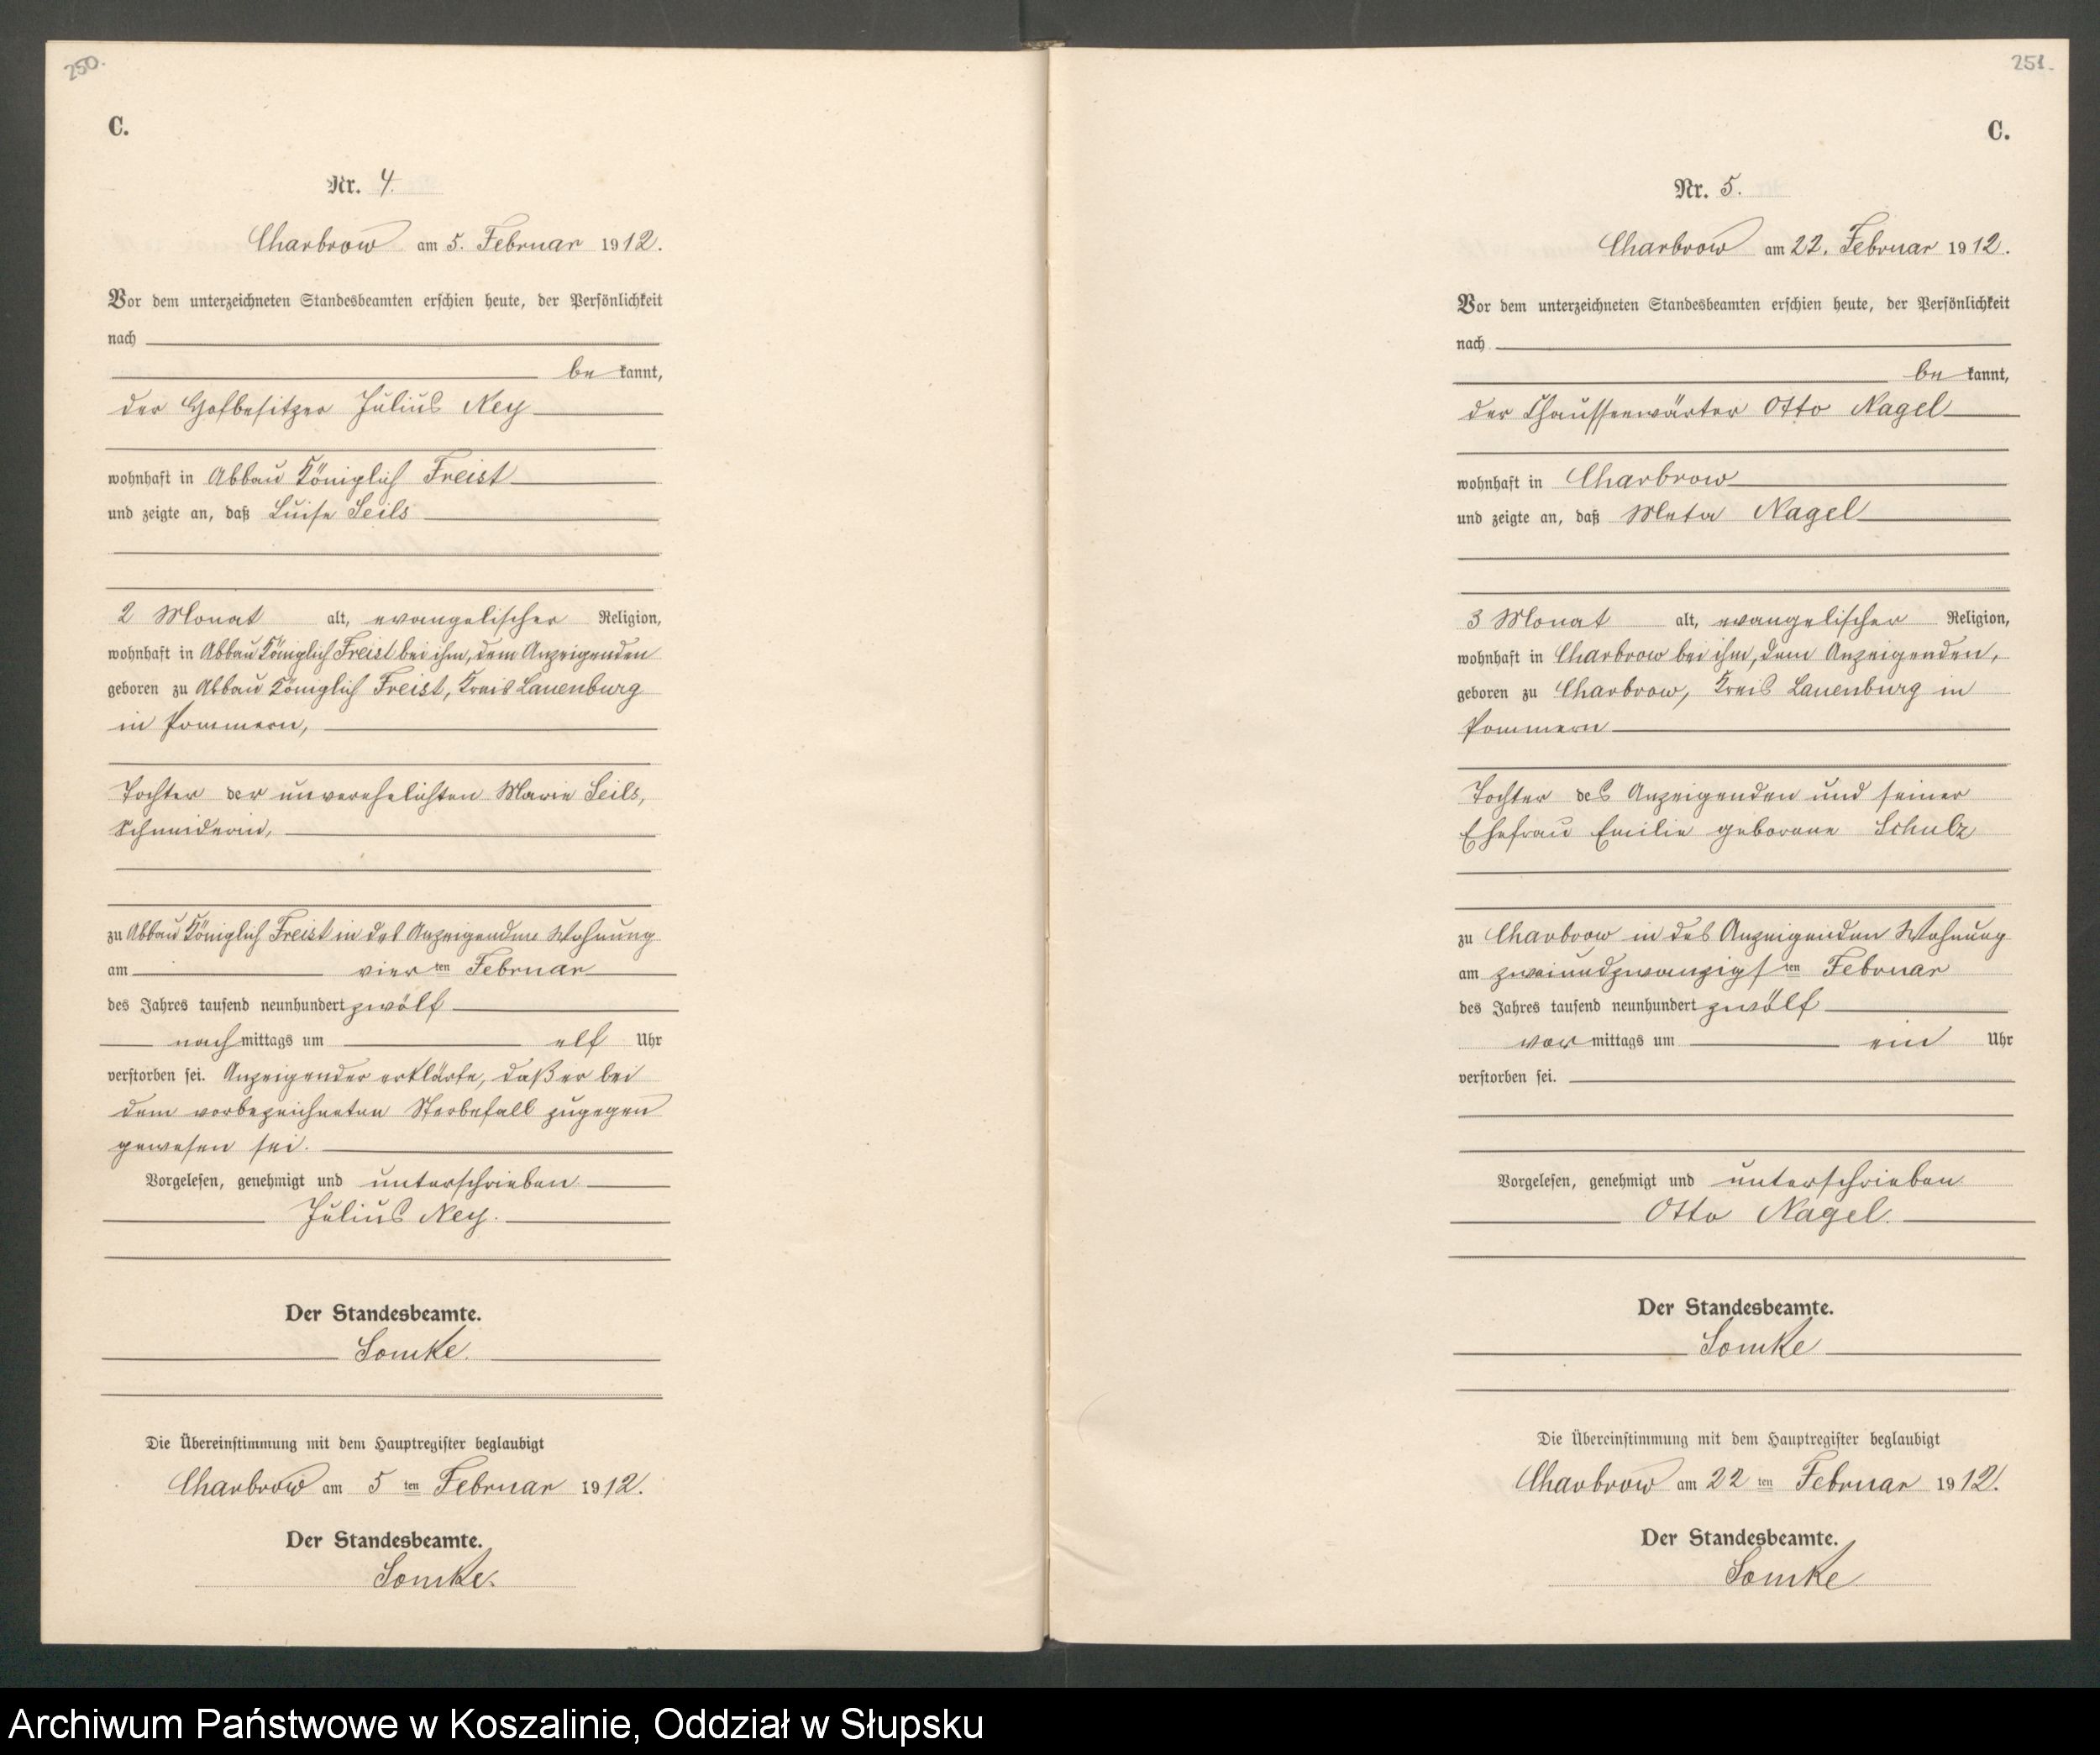 250.
C.
Nr. 4.
Charbrow am 5. Februar 1912.
Vor dem unterzeichneten Standesbeamten erschien heute, der Persönlichkeit
nach
be kannt,
der Hofbesitzer Julius Ney
wohnhaft in Abbau Königlich Freist
und zeigte an, daß Luise Seils
2 Monat alt, evangelischer Religion,
wohnhaft in Abbau Königlich Freist bei ihm, dem Anzeigenden
geboren zu Abbau Königlich Freist, Kreis Lauenburg
in Pommern,
Tochter der unverehelichten Marie Seils,
Schneiderin,
zu Abbau Königlich Freist in des Anzeigenden Wohnung
am vier ten Februar
des Jahres tausend neunhundert zwölf
nach mittags um elf Uhr
verstorben sei. Anzeigender erklärte, daß er bei
dem vorbezeichneten Sterbefall zugegen
gewesen sei.
Vorgelesen, genehmigt und unterschrieben
Julius Ney.
Der Standesbeamte.
Somke.
Die Übereinstimmung mit dem Hauptregister beglaubigt
Charbrow am 5 ten Februar 1912.
Der Standesbeamte.
Somke.
251.
C.
Nr. 5.
Charbrow am 22. Februar 1912.
Vor dem unterzeichneten Standesbeamten erschien heute, der Persönlichkeit
nach
be kannt,
der Chausseewärter Otto Nagel
wohnhaft in Charbrow
und zeigte an, daß Meta Nagel
3 Monat alt, evangelischer Religion,
wohnhaft in Charbrow bei ihm, dem Anzeigenden,
geboren zu Charbrow, Kreis Lauenburg in
Pommern
Tochter des Anzeigenden und seiner
Ehefrau Emilie geborene Schulz
zu Charbrow in des Anzeigenden Wohnung
am zweiundzwanzigs ten Februar
des Jahres tausend neunhundert zwölf
vor mittags um ein Uhr
verstorben sei.
Vorgelesen, genehmigt und unterschrieben
Otto Nagel.
Der Standesbeamte.
Somke
Die Übereinstimmung mit dem Hauptregister beglaubigt
Charbrow am 22 ten Februar 1912.
Der Standesbeamte.
Somke
Archiwum Państwowe w Koszalinie, Oddział w Słupsku